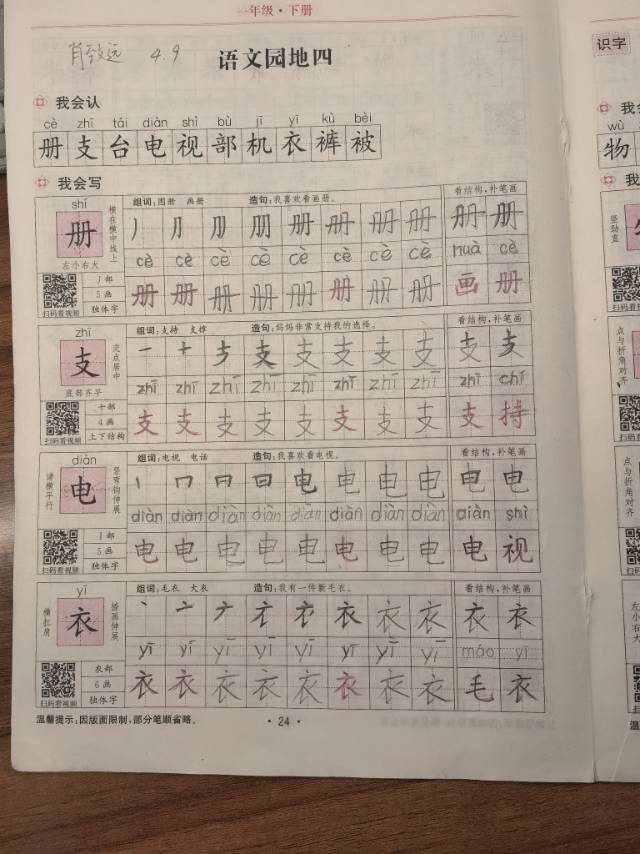 一年级·下册
肖致远 4.9
语文园地四
我会认
cè zhī tái diàn shì bù jī yī kù bèi
册 支 台 电 视 部 机 衣 裤 被
我会写
shí
册
横在横中线上
左小右大
扫码看视频
丿部
5画
独体字
组词:图册 画册 造句:我喜欢看画册。 看结构,补笔画
丿 册 册 册 册 册 册 册
cè cè cè cè cè cè cè cè huà cè
册 册 册 册 册 册 册 册 画 册
zhī
支
交点居中
底部齐平
扫码看视频
十部
4画
上下结构
组词:支持 支撑 造句:妈妈非常支持我的选择。 看结构,补笔画
一 十 支 支 支 支 支 支 支
zhī zhī zhī zhī zhī zhī zhī zhī zhī chí
支 支 支 支 支 支 支 支 支 持
diàn
电
诸横平行
竖弯钩伸展
扫码看视频
5画
独体字
组词:电视 电话 造句:我喜欢看电视。 看结构,补笔画
电 电 电 电 电 电
diàn diàn diàn diàn diàn diàn diàn diàn diàn shì
电 电 电 电 电 电 电 电 电 视
yī
衣
横扛肩
捺画伸展
扫码看视频
衣部
6画
独体字
组词:毛衣 大衣 造句:我有一件新毛衣。 看结构,补笔画
衣 衣 衣 衣 衣 衣
yī yī yī yī yī yī yī yī máo yī
衣 衣 衣 衣 衣 衣 衣 衣 毛 衣
温馨提示:因版面限制,部分笔顺省略。
·24·
识字
wù
物
竖劲直
点与折角对齐
点与折角对齐
左小右大